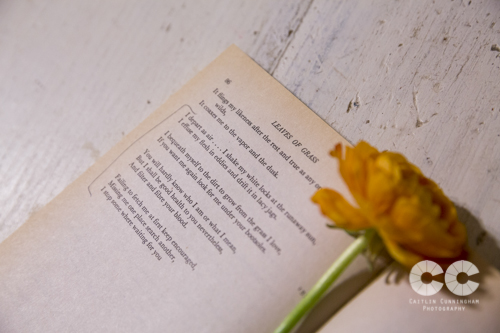 96
LEAVES OF GRASS
It flings my likeness after the rest and true as any on
wilds,
It coaxes me to the vapor and the dusk.
I depart as air . . . . I shake my white locks at the runaway sun,
I effuse my flesh in eddies and drift it in lacy jags.
I bequeath myself to the dirt to grow from the grass I love,
If you want me again look for me under your bootsoles.
You will hardly know who I am or what I mean,
But I shall be good health to you nevertheless,
And filter and fibre your blood.
Failing to fetch me at first keep encouraged,
Missing me one place search another,
I stop some where waiting for you
CC
CAITLIN CUNNINGHAM
PHOTOGRAPHY